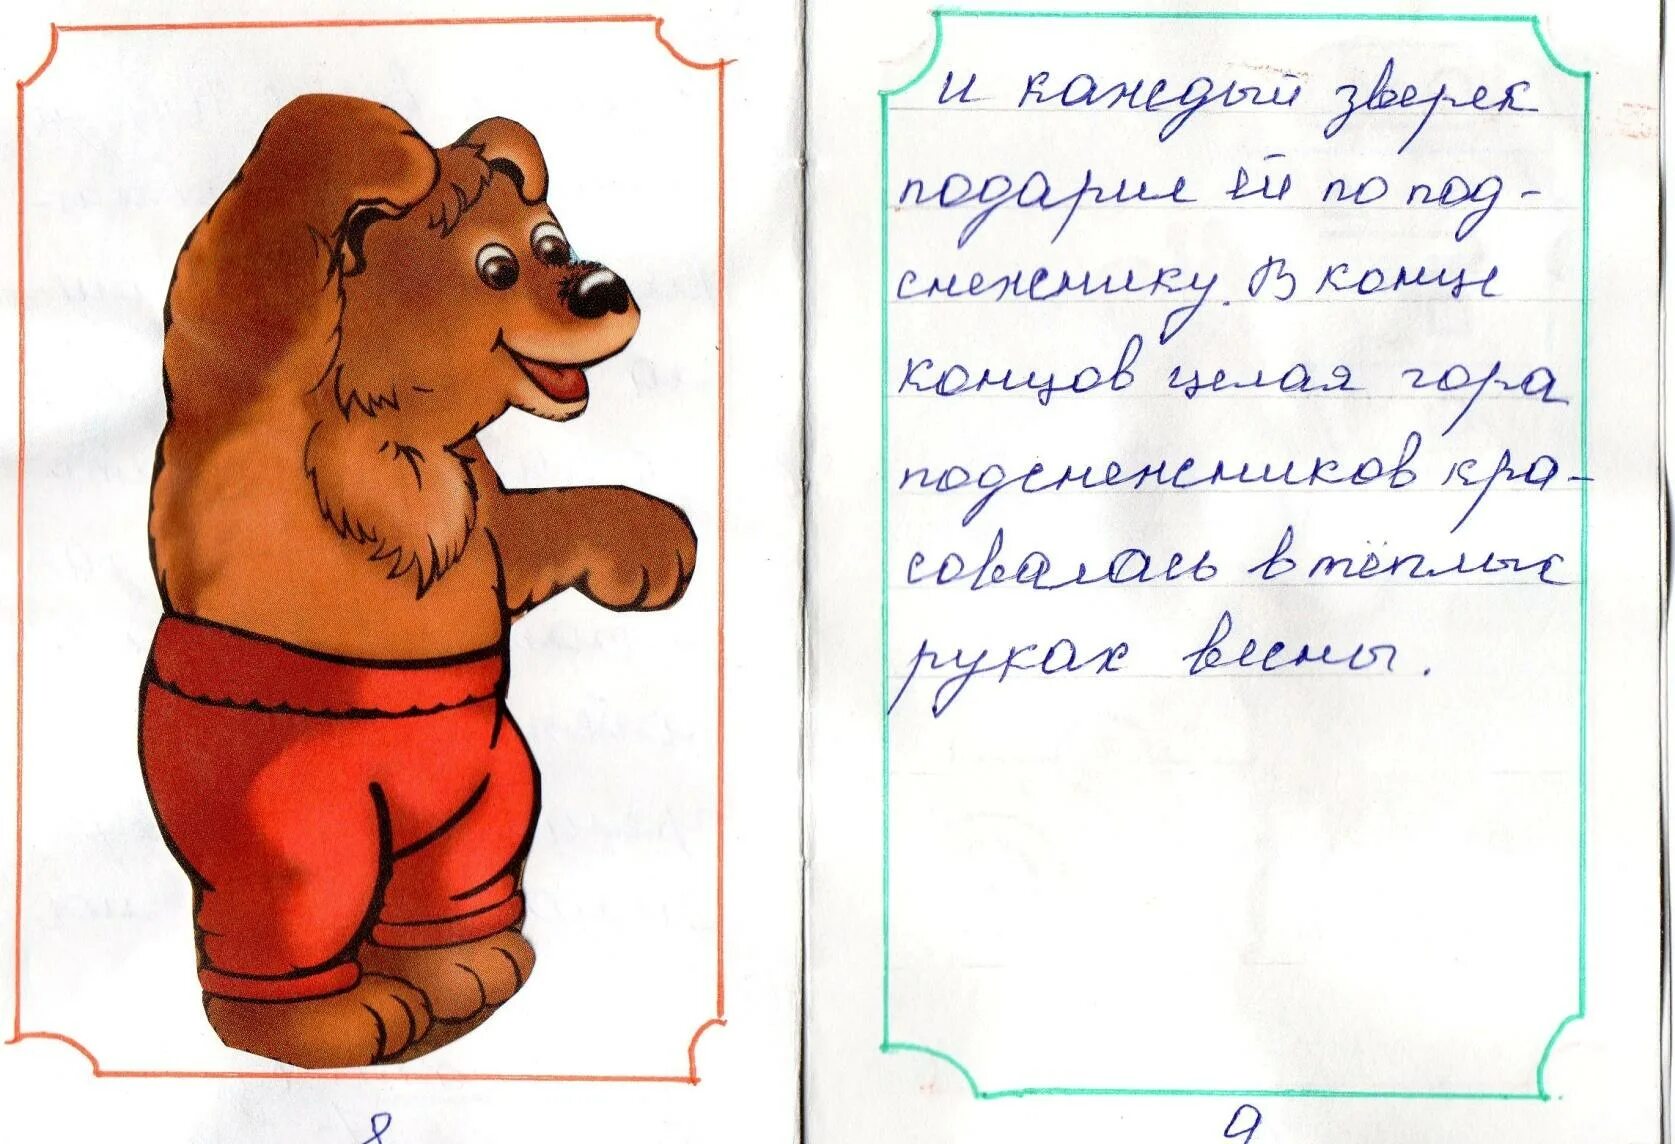 и каждый зверек
подарил ей по под-
снежнику. В конце
концов целая гора
подснежников кра-
совалась в тёплых
руках весны.
8
9